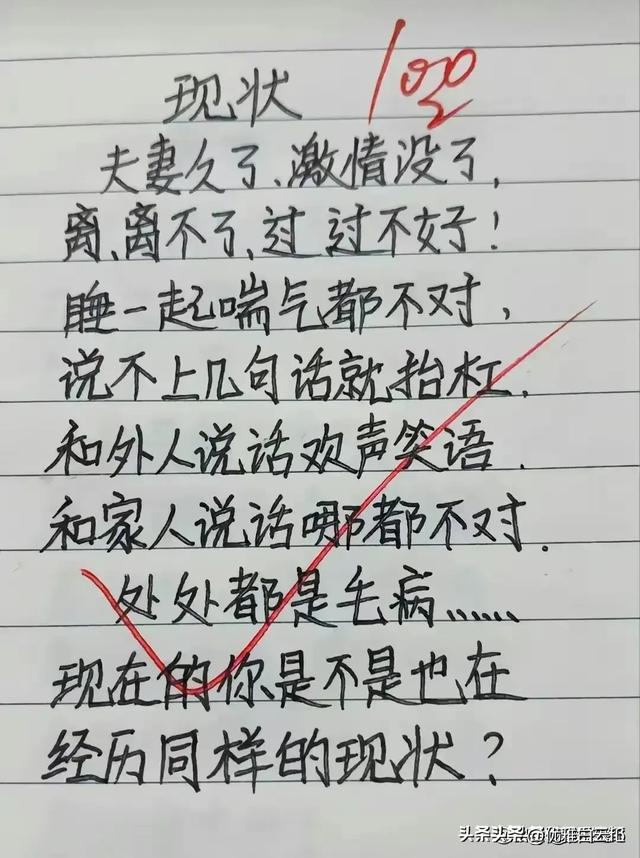 现状
100
夫妻久了、激情没了,
离、离不了、过 过不好!
睡一起喘气都不对,
说不上几句话就抬杠.
和外人说话欢声笑语.
和家人说话哪都不对.
处处都是毛病……
现在的你是不是也在
经历同样的现状?
头条头条@